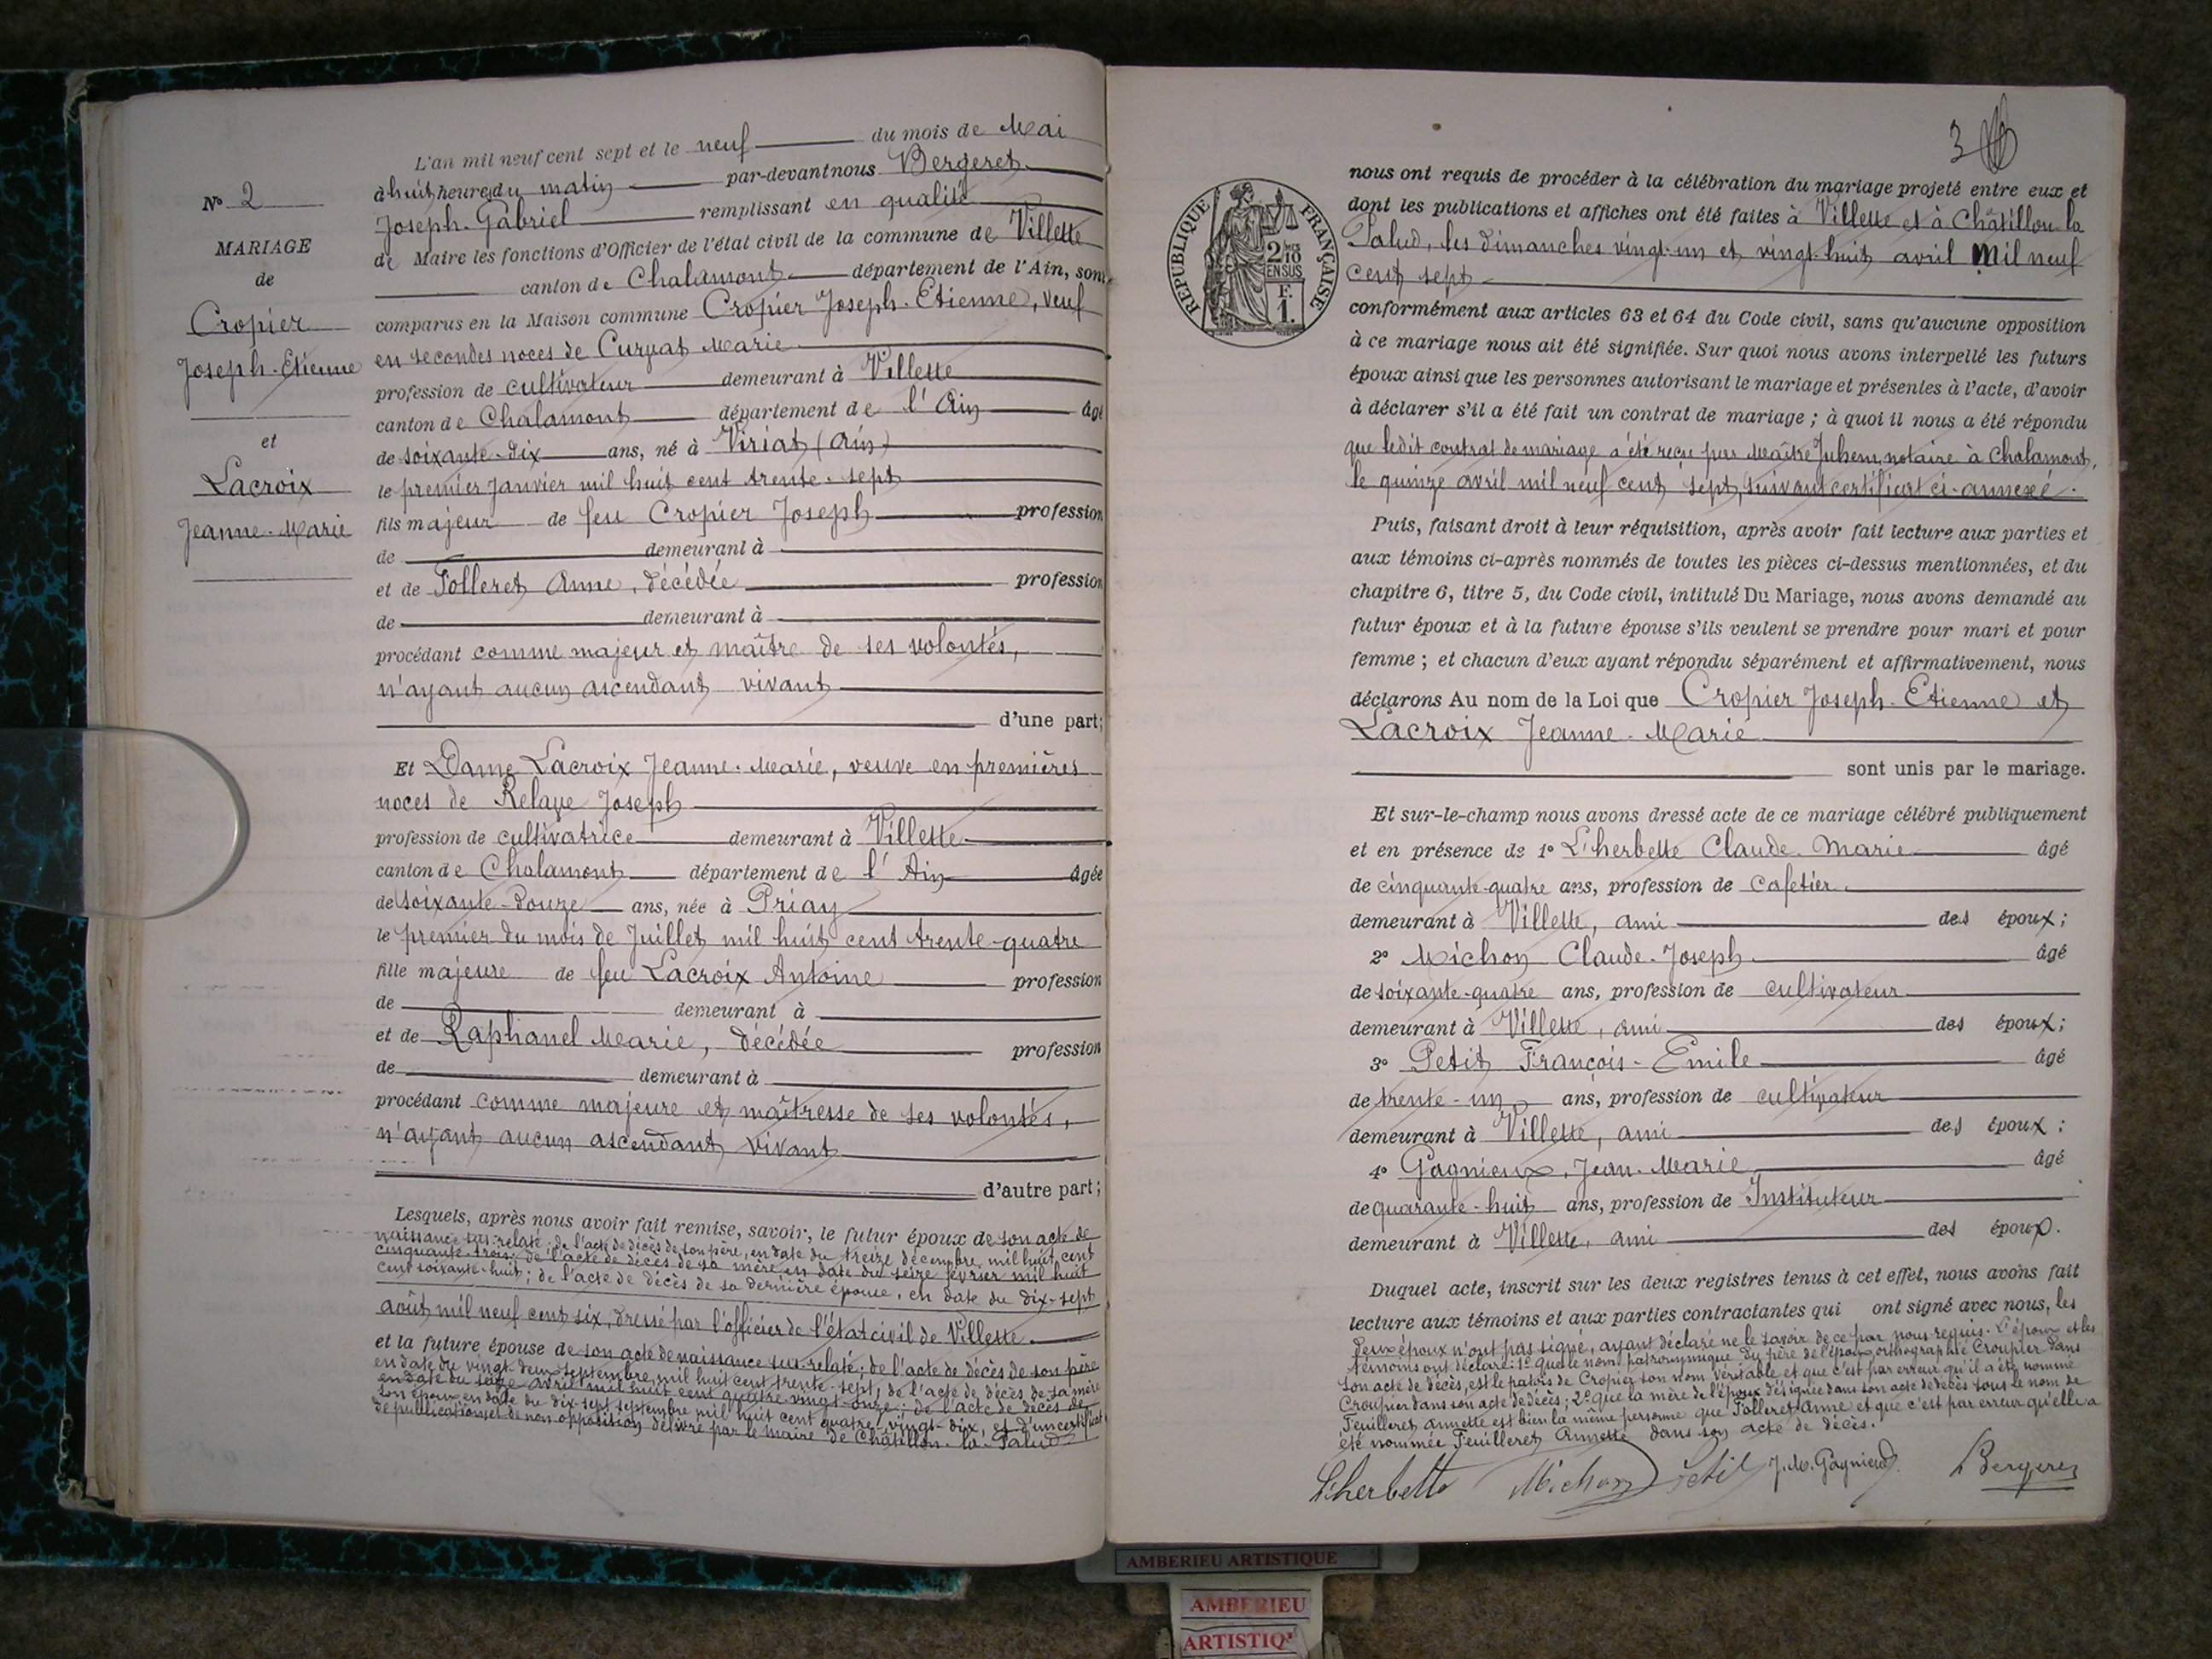 N° 2
MARIAGE
de
Cropier
Joseph-Etienne
et
Lacroix
Jeanne-Marie
L'an mil neuf cent sept et le neuf du mois de Mai
à huit heures du matin par-devant nous Bergeret
Joseph-Gabriel remplissant en qualité
de Maire les fonctions d'Officier de l'état civil de la commune de Villette
canton de Chalamont département de l'Ain, sont
comparus en la Maison commune Cropier Joseph-Etienne, veuf
en secondes noces de Curvat Marie
profession de cultivateur demeurant à Villette
canton de Chalamont département de l'Ain âgé
de soixante-dix ans, né à Viriat (Ain)
le premier Janvier mil huit cent trente-sept
fils majeur de feu Cropier Joseph profession
de demeurant à
et de Folleret Anne, décédée profession
de demeurant à
procédant comme majeur et maître de ses volontés,
n'ayant aucun ascendant vivant
d'une part;
Et Dame Lacroix Jeanne-Marie, veuve en premières
noces de Relave Joseph
profession de cultivatrice demeurant à Villette
canton de Chalamont département de l'Ain âgée
de soixante-douze ans, née à Priay
le premier du mois de Juillet mil huit cent trente-quatre
fille majeure de feu Lacroix Antoine profession
de demeurant à
et de Raphanel Marie, décédée profession
de demeurant à
procédant comme majeure et maîtresse de ses volontés,
n'ayant aucun ascendant vivant
d'autre part;
Lesquels, après nous avoir fait remise, savoir, le futur époux de son acte de
naissance sus-relaté; de l'acte de décès de son père, en date du treize décembre mil huit cent
cinquante-trois; de l'acte de décès de sa mère en date du seize février mil huit
cent soixante-huit; de l'acte de décès de sa dernière épouse, en date du dix-sept
août mil neuf cent six, dressé par l'officier de l'état civil de Villette.
et la future épouse de son acte de naissance sus-relaté; de l'acte de décès de son père
en date du vingt-deux septembre mil huit cent trente-sept; de l'acte de décès de sa mère
en date du seize avril mil huit cent quatre-vingt-onze; de l'acte de décès de
son époux en date du dix-sept septembre mil huit cent quatre-vingt-dix, et d'un certificat
de publication et de non opposition délivré par le maire de Châtillon-la-Palud
3
RÉPUBLIQUE FRANÇAISE
2/10
EN SUS
F.
1.
nous ont requis de procéder à la célébration du mariage projeté entre eux et
dont les publications et affiches ont été faites à Villette et à Châtillon la
Palud, les dimanches vingt-un et vingt-huit avril mil neuf
cent sept
conformément aux articles 63 et 64 du Code civil, sans qu'aucune opposition
à ce mariage nous ait été signifiée. Sur quoi nous avons interpellé les futurs
époux ainsi que les personnes autorisant le mariage et présentes à l'acte, d'avoir
à déclarer s'il a été fait un contrat de mariage ; à quoi il nous a été répondu
que ledit contrat de mariage a été reçu par Maître notaire à Chalamont,
le quinze avril mil neuf cent sept, suivant certificat ci-annexé.
Puis, faisant droit à leur réquisition, après avoir fait lecture aux parties et
aux témoins ci-après nommés de toutes les pièces ci-dessus mentionnées, et du
chapitre 6, titre 5, du Code civil, intitulé Du Mariage, nous avons demandé au
futur époux et à la future épouse s'ils veulent se prendre pour mari et pour
femme ; et chacun d'eux ayant répondu séparément et affirmativement, nous
déclarons Au nom de la Loi que Cropier Joseph-Etienne et
Lacroix Jeanne-Marie
sont unis par le mariage.
Et sur-le-champ nous avons dressé acte de ce mariage célébré publiquement
et en présence de 1° L'herbette Claude-Marie âgé
de cinquante-quatre ans, profession de cafetier
demeurant à Villette, ami des époux;
2° Michon Claude-Joseph âgé
de soixante-quatre ans, profession de cultivateur
demeurant à Villette, ami des époux;
3° Petit François-Emile âgé
de trente-un ans, profession de cultivateur
demeurant à Villette, ami des époux;
4° Gagnieux Jean-Marie âgé
de quarante-huit ans, profession de Instituteur
demeurant à Villette, ami des époux.
Duquel acte, inscrit sur les deux registres tenus à cet effet, nous avons fait
lecture aux témoins et aux parties contractantes qui ont signé avec nous, les
deux époux n'ont pas signé, ayant déclaré ne le savoir de ce par nous requis. L'époux et les
témoins ont déclaré: 1° que le nom patronymique du père de l'époux orthographié Croupier dans
son acte de décès, est le patois de Cropier son nom véritable et que c'est par erreur qu'il a été nommé
Croupier dans son acte de décès; 2° que la mère de l'époux désignée dans son acte de décès sous le nom de
Feuilleret Annette est bien la même personne que Folleret Anne et que c'est par erreur qu'elle a
été nommée Feuilleret Annette dans son acte de décès.
L'herbette Michon Petit J.M. Gagnieux Bergeret
AMBERIEU ARTISTIQUE
AMBERIEU
ARTISTIQ